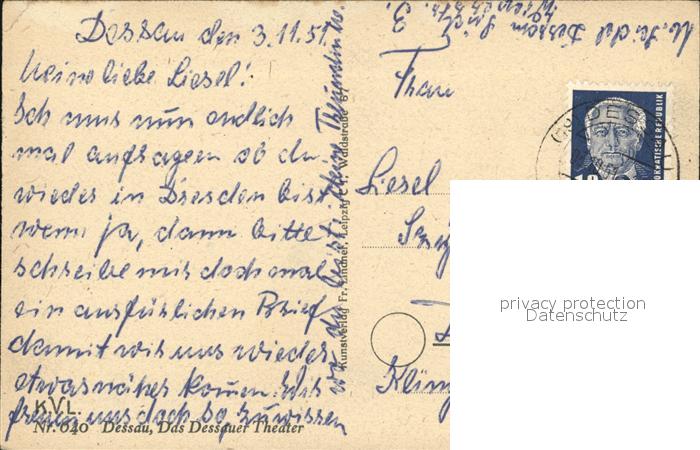 Dessau den 3.11.51.
Meine liebe Liesel!
Ich muss nun endlich
mal anfragen ob du
wieder in Dresden bist
wenn ja, dann bitte
schreibe mir doch mal
ein ausführlichen Brief
damit wir uns wieder
etwas näher kommen. Wir
freuen uns doch so, zu wissen
wo du bist. deine Freundin
K.V.L.
Nr. 640 Dessau, Das Dessauer Theater
Kunstverlag Fr. Lindner, Leipzig Waldstraße
Dessau Süd
3.
Frau
Liesel
DESSAU
DEMOKRATISCHE REPUBLIK
privacy protection
Datenschutz